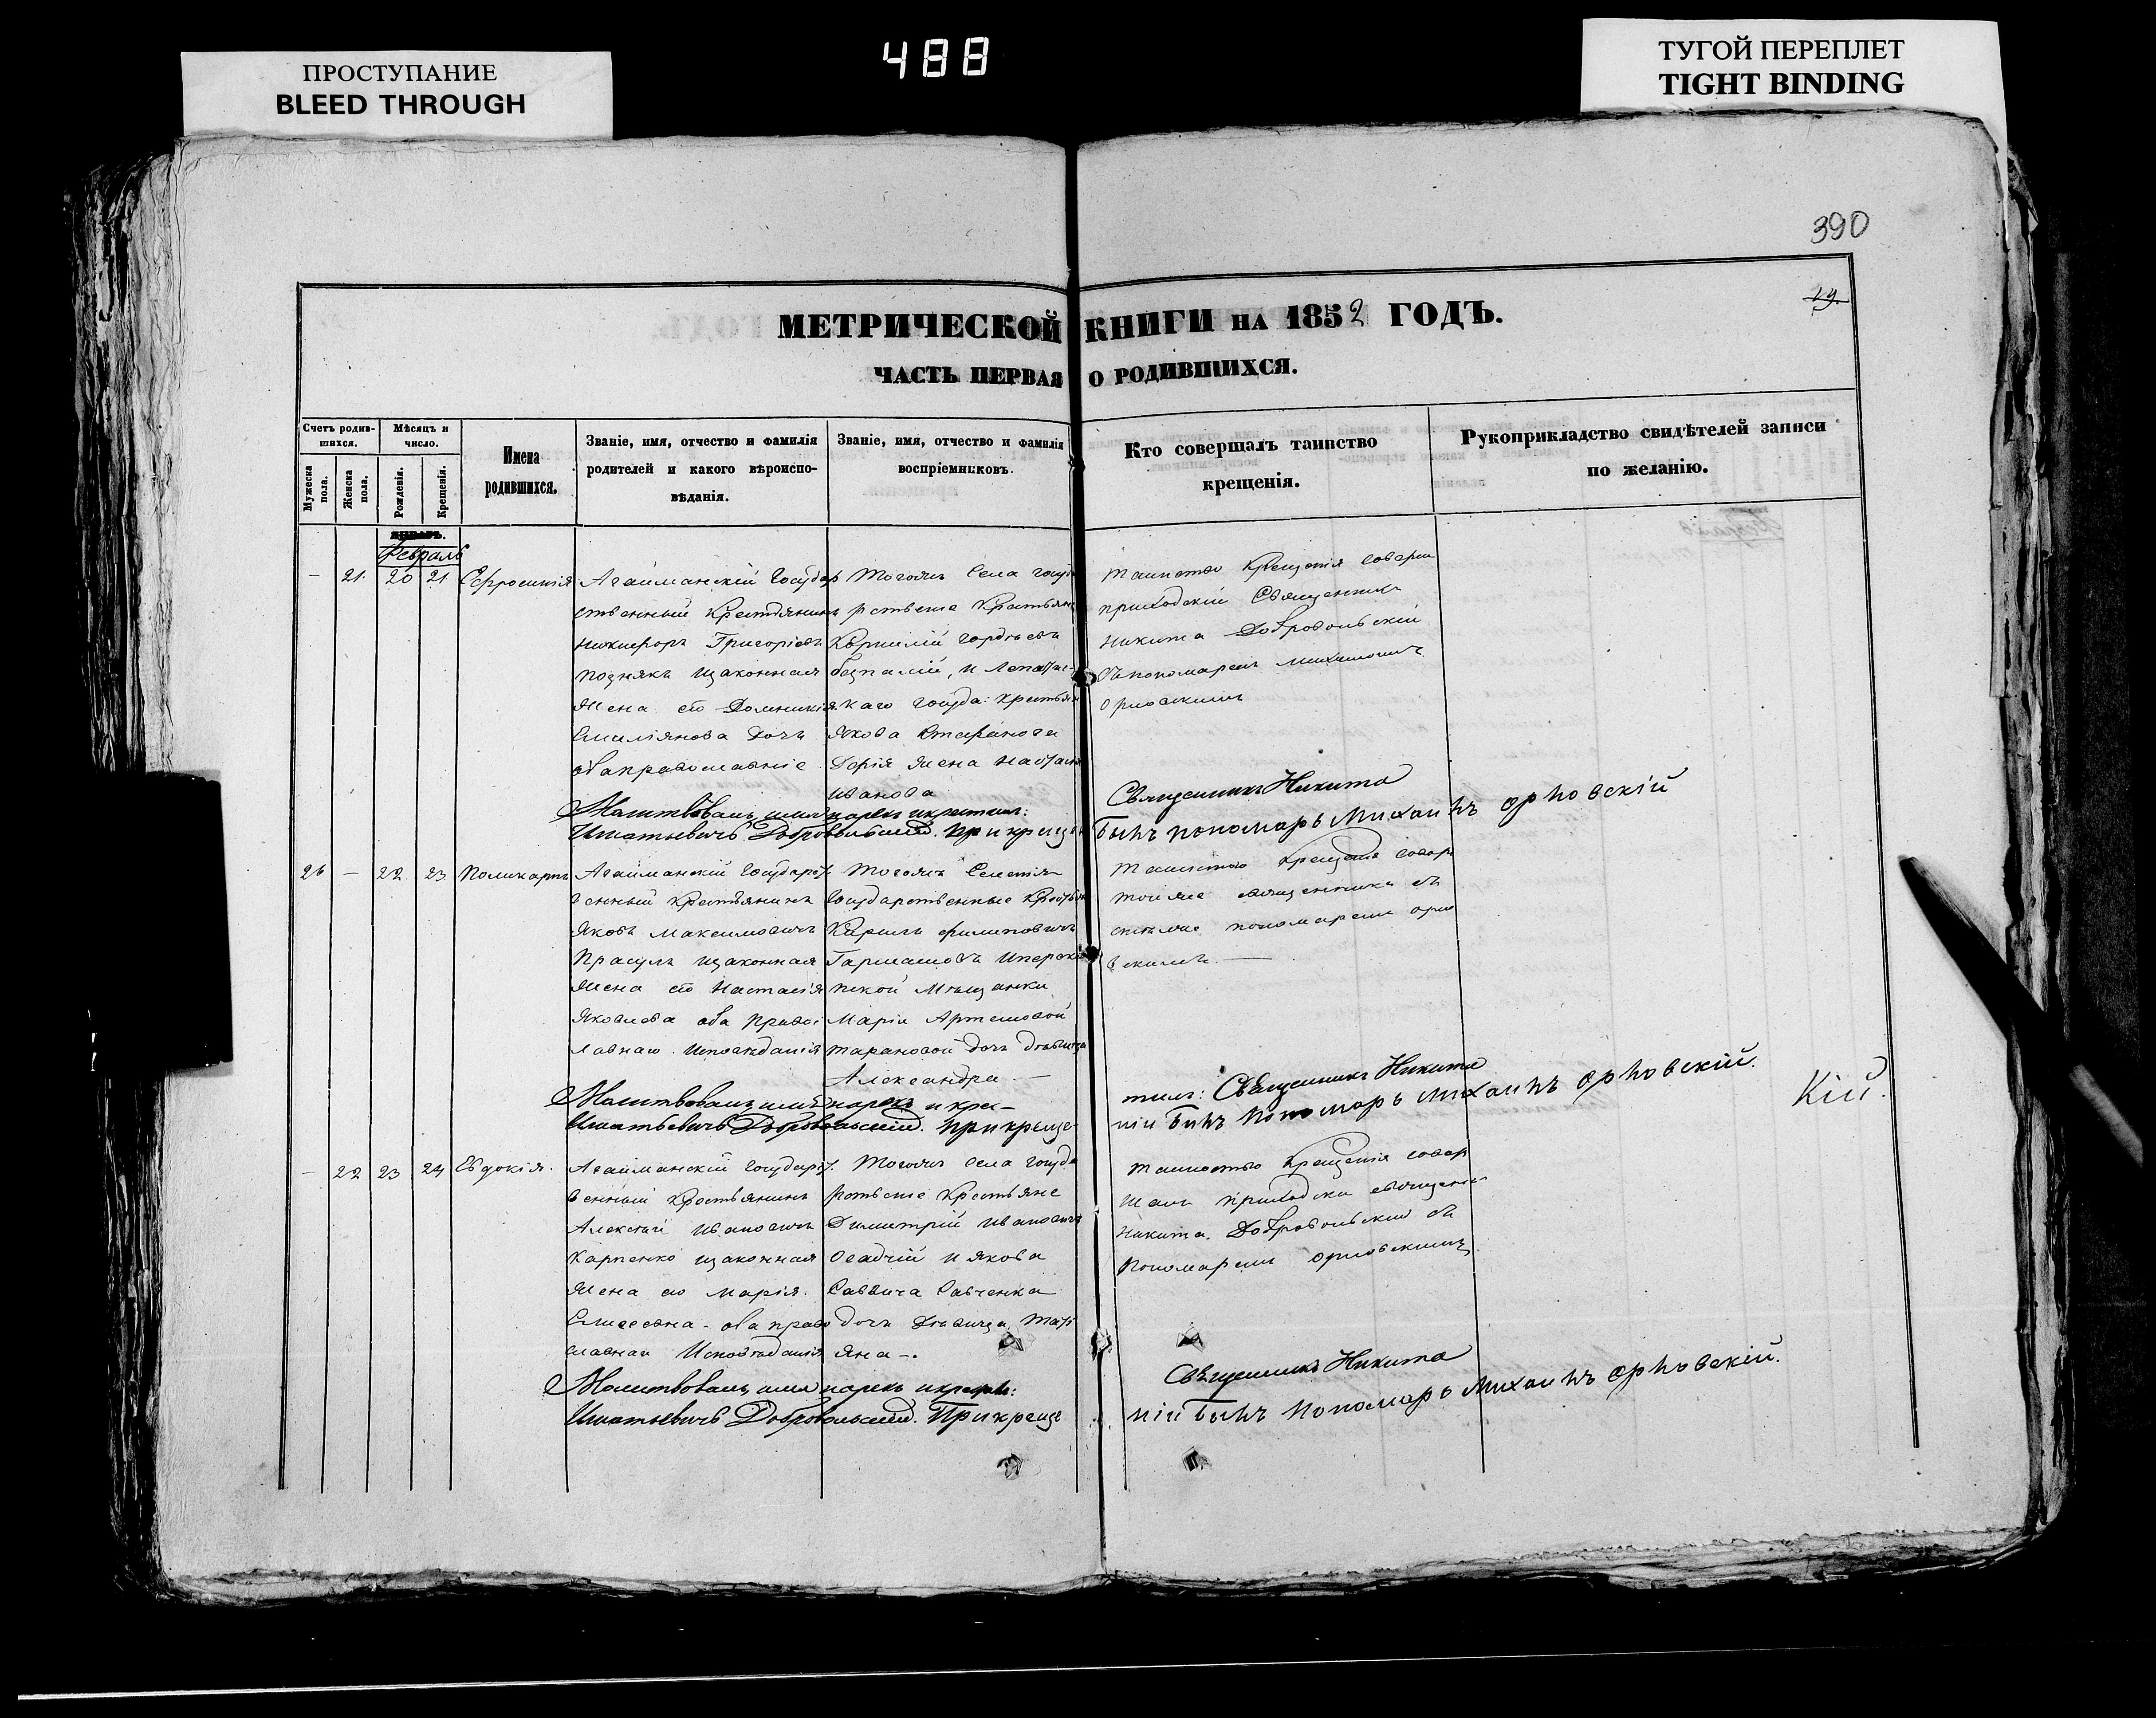 488
ПРОСТУПАНИЕ
BLEED THROUGH
ТУГОЙ ПЕРЕПЛЕТ
TIGHT BINDING
390
29.
МЕТРИЧЕСКОЙ КНИГИ НА 1852 ГОДЪ.
ЧАСТЬ ПЕРВАЯ О РОДИВШИХСЯ.
Счетъ родив-
шихся.
Мужеска
пола.
Женска
пола.
Мѣсяцъ и
число.
Рожденія.
Крещенія.
Имена
родившихся.
Званіе, имя, отчество и фамилія
родителей и какого вѣроиспо-
вѣданія.
Званіе, имя, отчество и фамилія
воспріемниковъ.
Кто совершалъ таинство
крещенія.
Рукоприкладство свидѣтелей записи
по желанію.
ЯНВАРЬ.
Февраль
— 21. 20 21 Ефросинія
Агайманскій Государ
ственный Крестьянинъ
Никифоръ Григоріевъ
Познякъ изаконная
Жена его Домникія
Емиліянова Дочь
оба православніе
Тогожъ Села Госуда
рствение Крестьяне
Корнилій Гордѣевъ
, и
каго Госуда: Крестьян
Якова Стефанова
Дарія Жена
Иванова
Таинство Крещенія соверш
приходскій Священникъ
Никита Добровольскій
съ пономаремъ Михаиломъ
Орловскимъ
Молитвовалъ, имя нарекъ и крестилъ: Священникъ Никита
Игнатьевичъ Добровольскій. При креще
былъ пономарь Михаилъ Орловскій
26 — 22 23 Поликарпъ
Агайманскій Государст
венный Крестьянинъ
Яковъ Максимовичъ
Прасулъ изаконная
Жена его Настасія
Яковлева оба Правос
лавнаго Исповѣданія
Тогожъ Селенія
Государственные Крестьян
Кирилъ Филиповичъ
Гармашовъ
пской Мѣщанки
Маріи Артемовой
Тарановой дочь дѣвица
Александра. —
Таинство Крещенія совер
тойже священникъ съ
пономаремъ Орло
вскимъ. —
Молитвовалъ, имя нарекъ и крес- тилъ: Священникъ Никита
Игнатьевичъ Добровольскій. При креще-
ніи былъ Пономарь Михаилъ Орловскій.
Кій.
— 22 23 24 Евдокія.
Агайманскій Государст
венный Крестьянинъ
Алексѣй Ивановичъ
Карпенко изаконная
Жена его Марія.
Елисеевна - оба право
славнаго Исповѣданія
Тогожъ Села Госуда
рствение Крестьяне
Димитрій Ивановичъ
Осадчій и Якова
Саввича Савченка
дочь Дѣвица Тать
яна —.
Таинство Крещенія совер
шалъ приходскій священ
Никита Добровольскій съ
Пономаремъ Орловскимъ
Молитвовалъ, имя нарекъ и крестилъ: Священникъ Никита
Игнатьевичъ Добровольскій. При креще
ніи былъ Пономарь Михаилъ Орловскій.